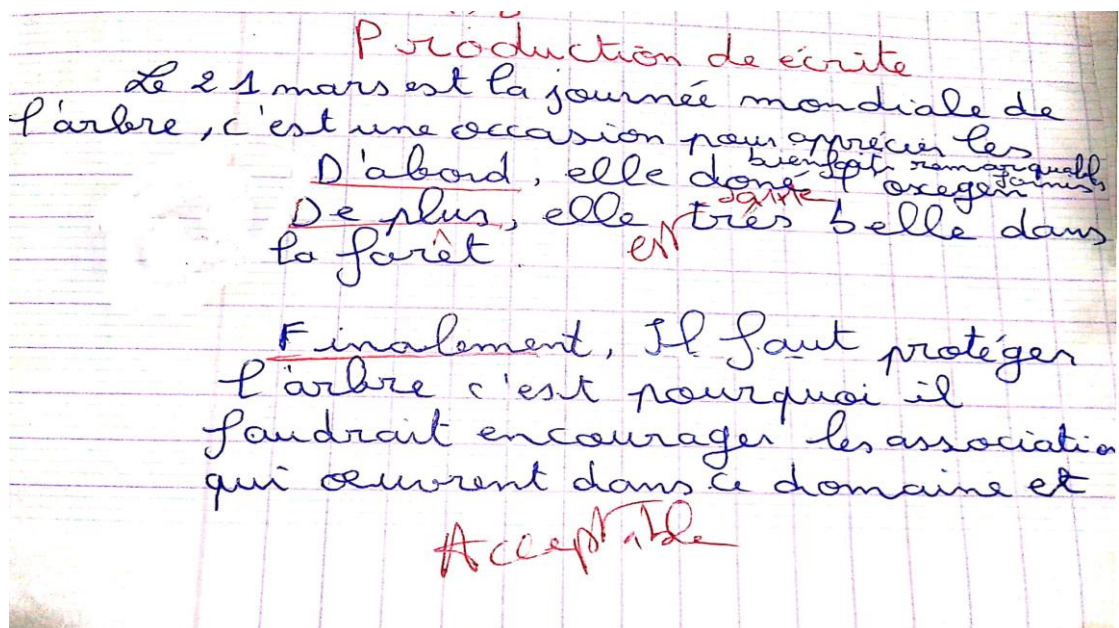 Production de écrite
Le 21 mars est la journée mondiale de
l'arbre, c'est une occasion pour apprécier les
bienfaits remarquables
D'abord, elle done l'oxegen
De plus, elle très belle dans
est
la forêt.
Finalement, Il faut protéger
l'arbre c'est pourquoi il
faudrait encourager les associatio
qui œuvrent dans ce domaine et
Acceptable